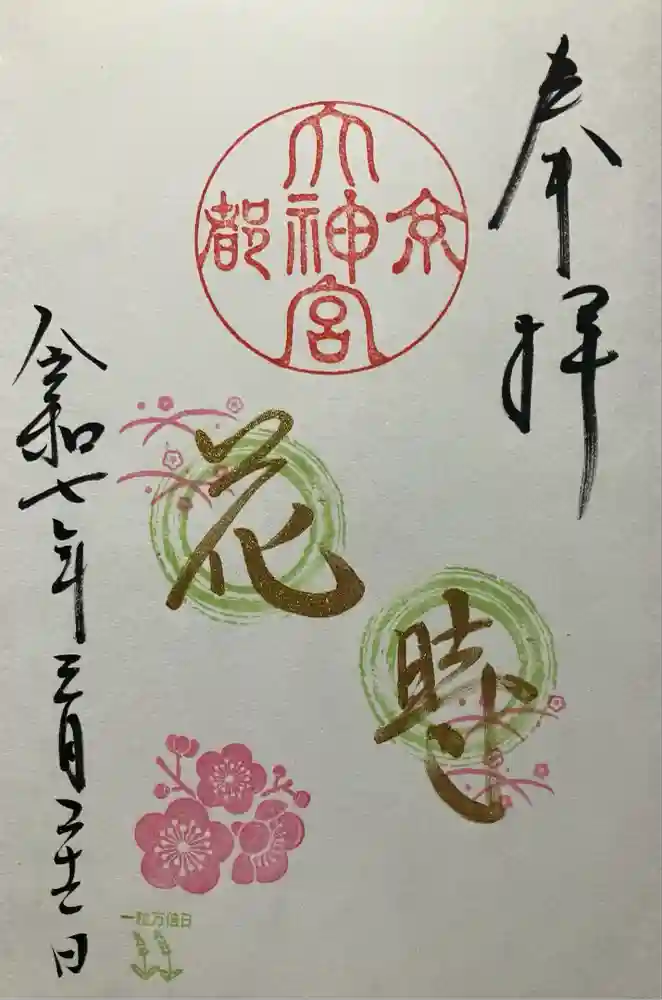 奉拝
京都
大神宮
花時
令和七年三月二十二日
一粒万倍日